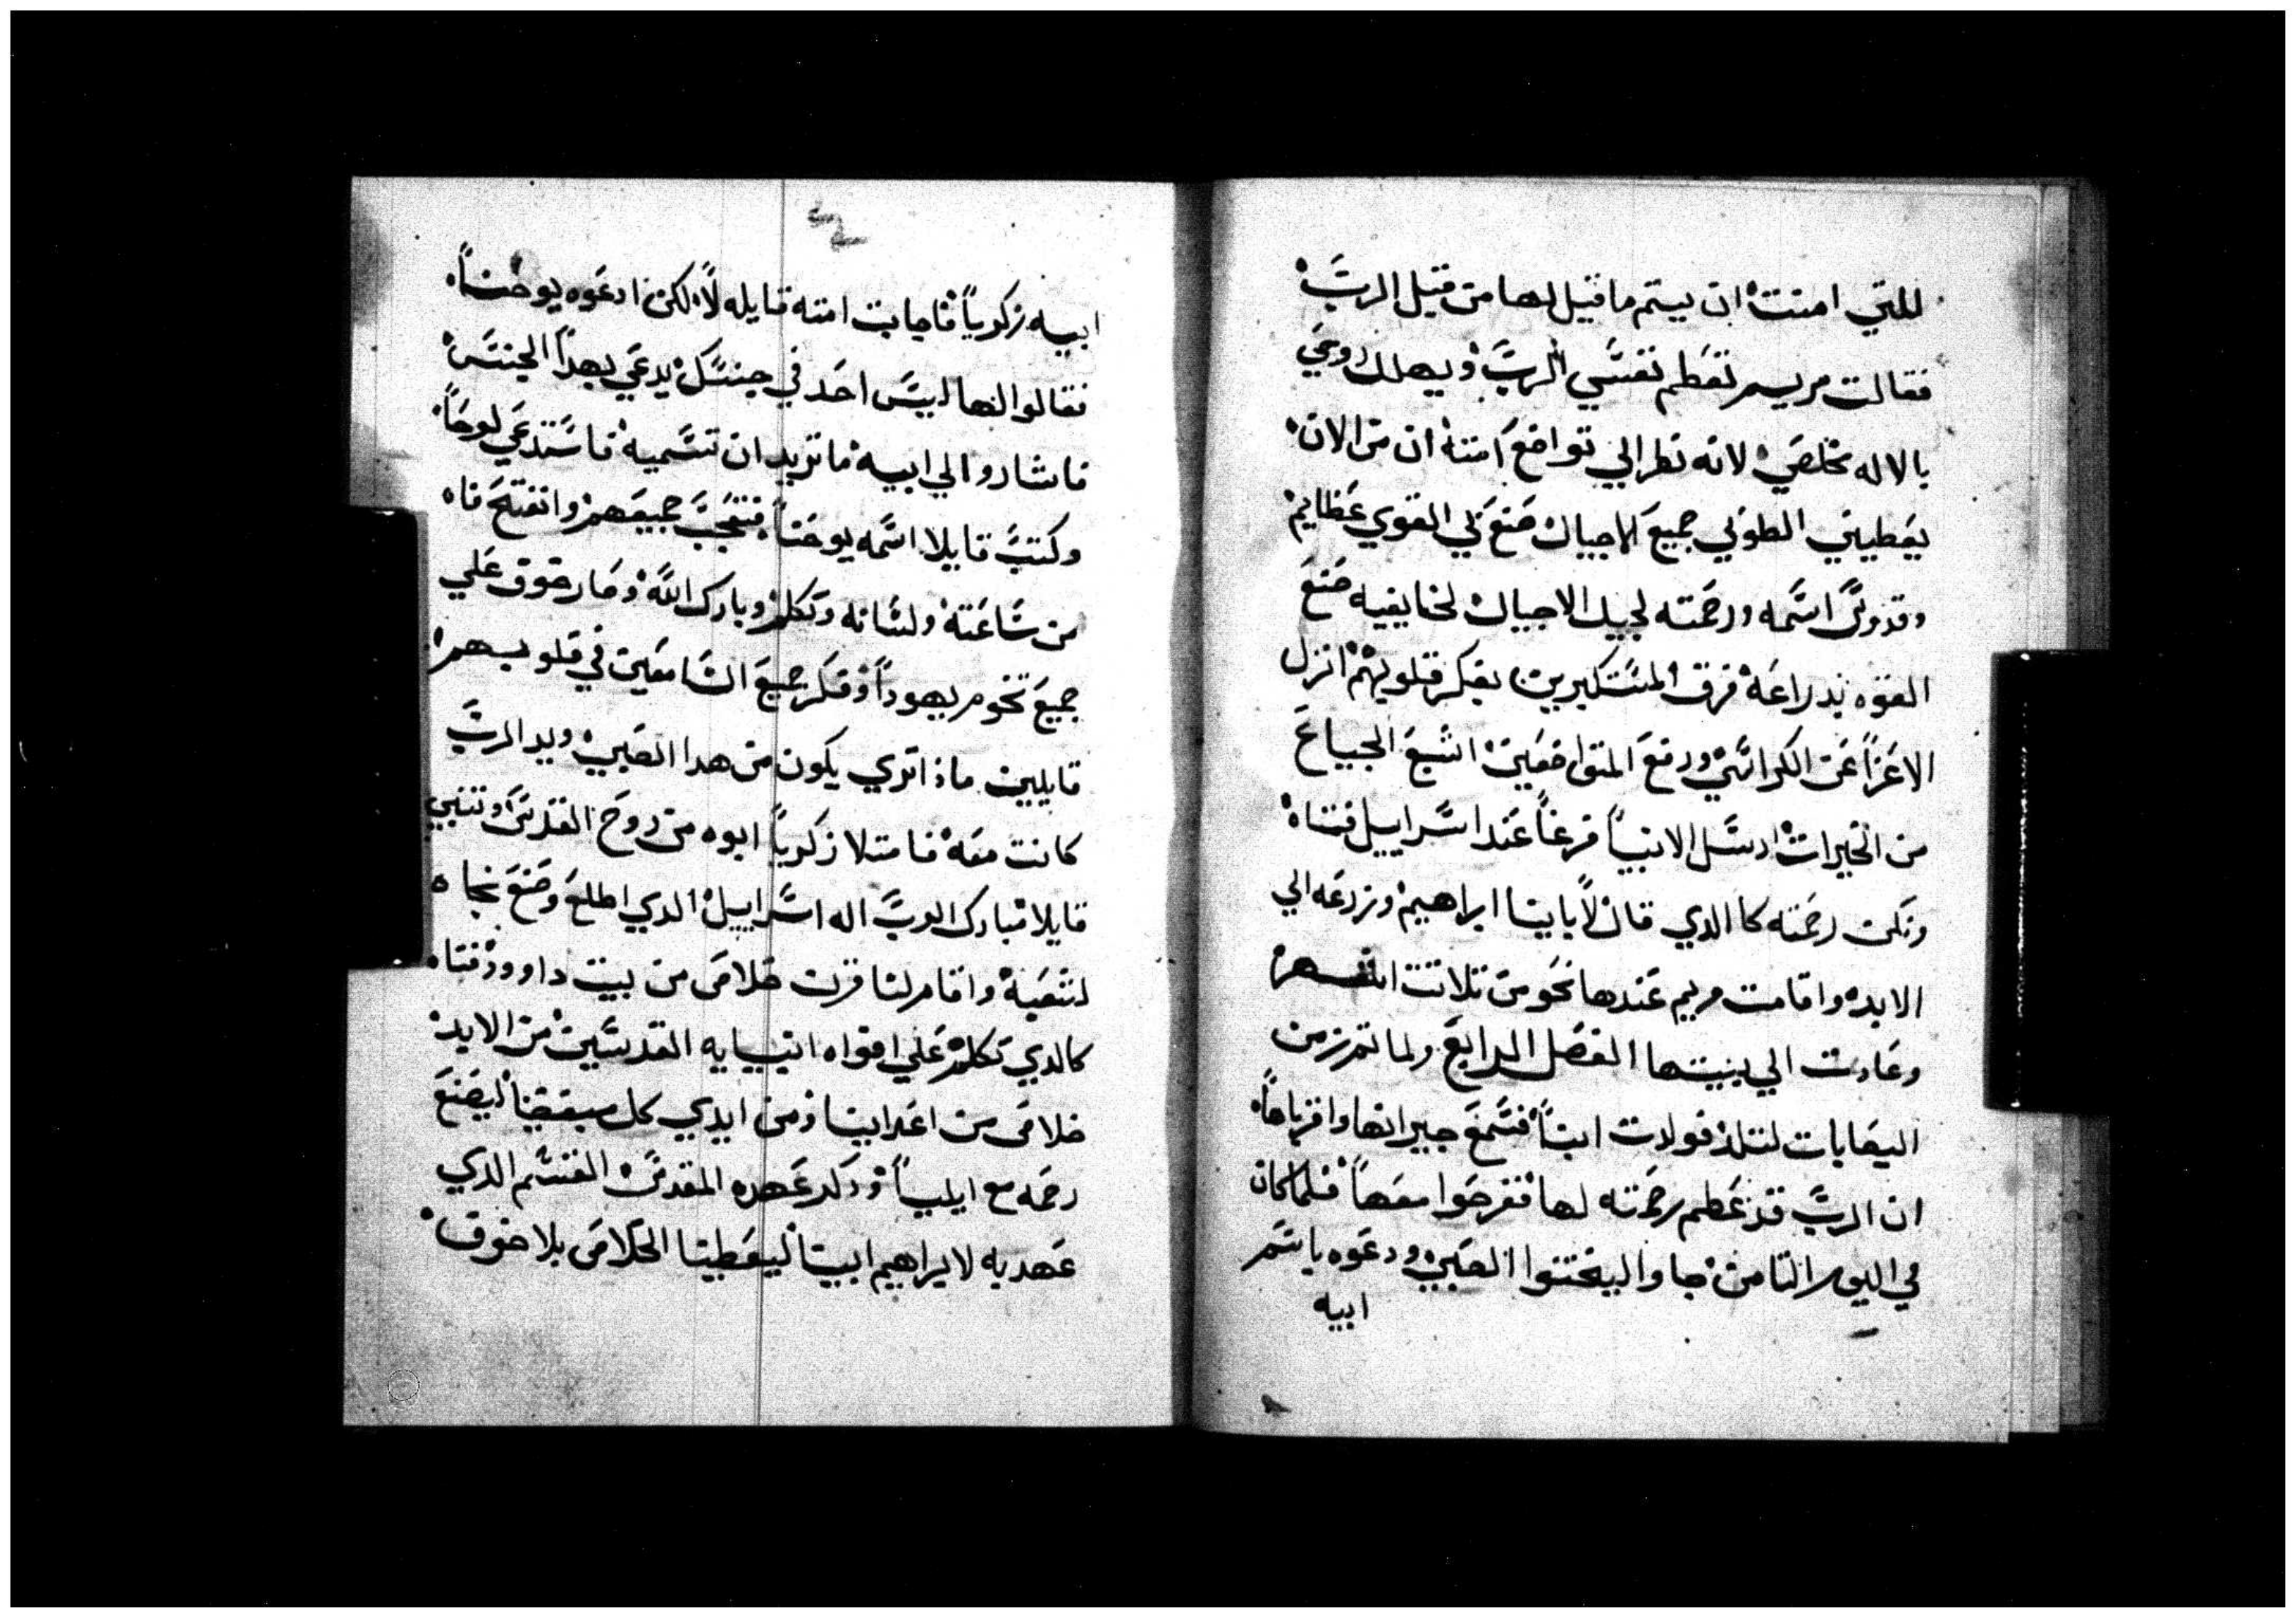 للتي امنت ان يتم ما قيل لها من قبل الرب
فقالت مريم تعظم نفسي الرب ويهلل روحي
بالاله مخلصي لانه نظر الي تواضع امته ان من الان
يعطيني الطوبي جميع الاجيال صنع بي القوي عظايم
وقدوس اسمه ورحمته لجيل الاجيال لخايفيه صنع
القوه بدراعه فرق المستكبرين بفكر قلوبهم انزل
الاعزا عن الكراسي ورفع المتواضعين اشبع الجياع
من الخيرات ارسل الانبيا فرغا عند اسراييل فتاه
وذكر رحمته كالدي قال لاباينا ابراهيم وزرعه الي
الابد واقامت مريم عندها نحو من تلاتت اشهر
وعادت الي بيتها الفصل الرابع ولما تم زمن
اليصابات لتلد فولدت ابنا فسمع جيرانها واقرباها
ان الرب قد عظم رحمته لها ففرحوا معها فلما كان
في اليوم التامن جاوا ليختنوا الصبي ودعوه باسم
ابيه
ابيه زكريا فاجابت امه قايله لا لكن ادعوه يوحنا
فقالوا لها ليس احد في جنسك يدعي بهدا الجنس
فاشاروا الي ابيه ما تريد ان تسميه فاستدعي لوحا
وكتب قايلا اسمه يوحنا فتعجب جميعهم وانفتح فاه
من ساعته ولسانه وتكلم وبارك الله وصار خوف علي
جميع تخوم يهودا وفكر جميع السامعين في قلوبهم
قايلين ماذا تري يكون من هدا الصبي ويد الرب
كانت معه فامتلا زكريا ابوه من روح القدس وتنبي
قايلا مبارك الرب اله اسراييل الدي اطلع وصنع نجاه
لشعبه واقام لنا قرن خلاص من بيت داوود فتاه
كالدي تكلم علي افواه انبيايه القديسين من الابد
خلاص من اعداينا ومن ايدي كل مبغضينا ليصنع
رحمه مع ابايينا ودكر عهده المقدس القسم الدي
عهد به لابراهيم ابينا ليعطينا الخلاص بلا خوف